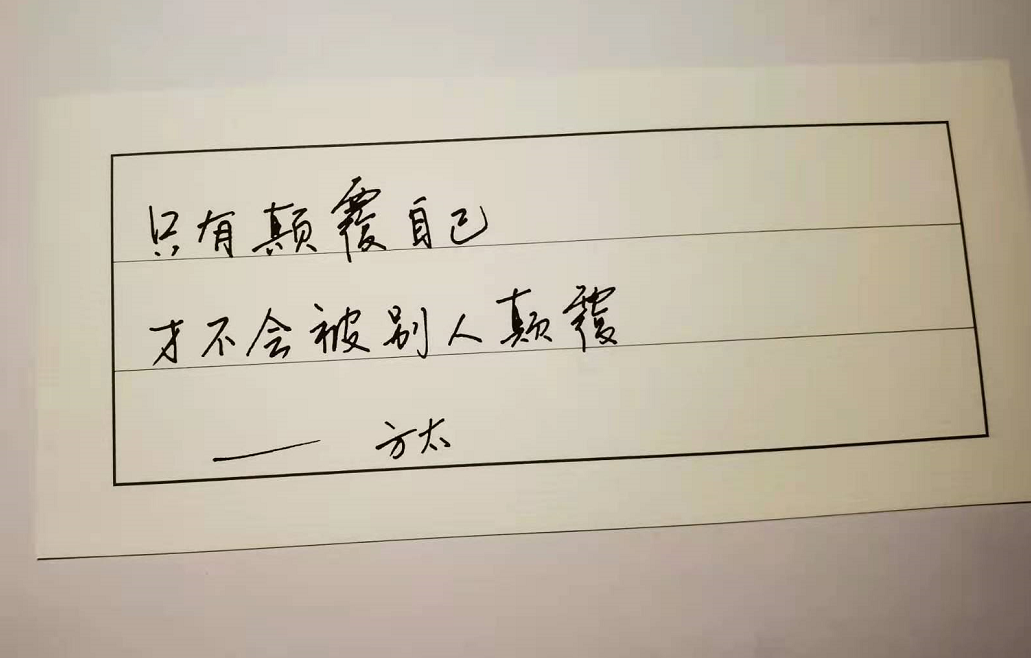 只有颠覆自己
才不会被别人颠覆
—— 方太